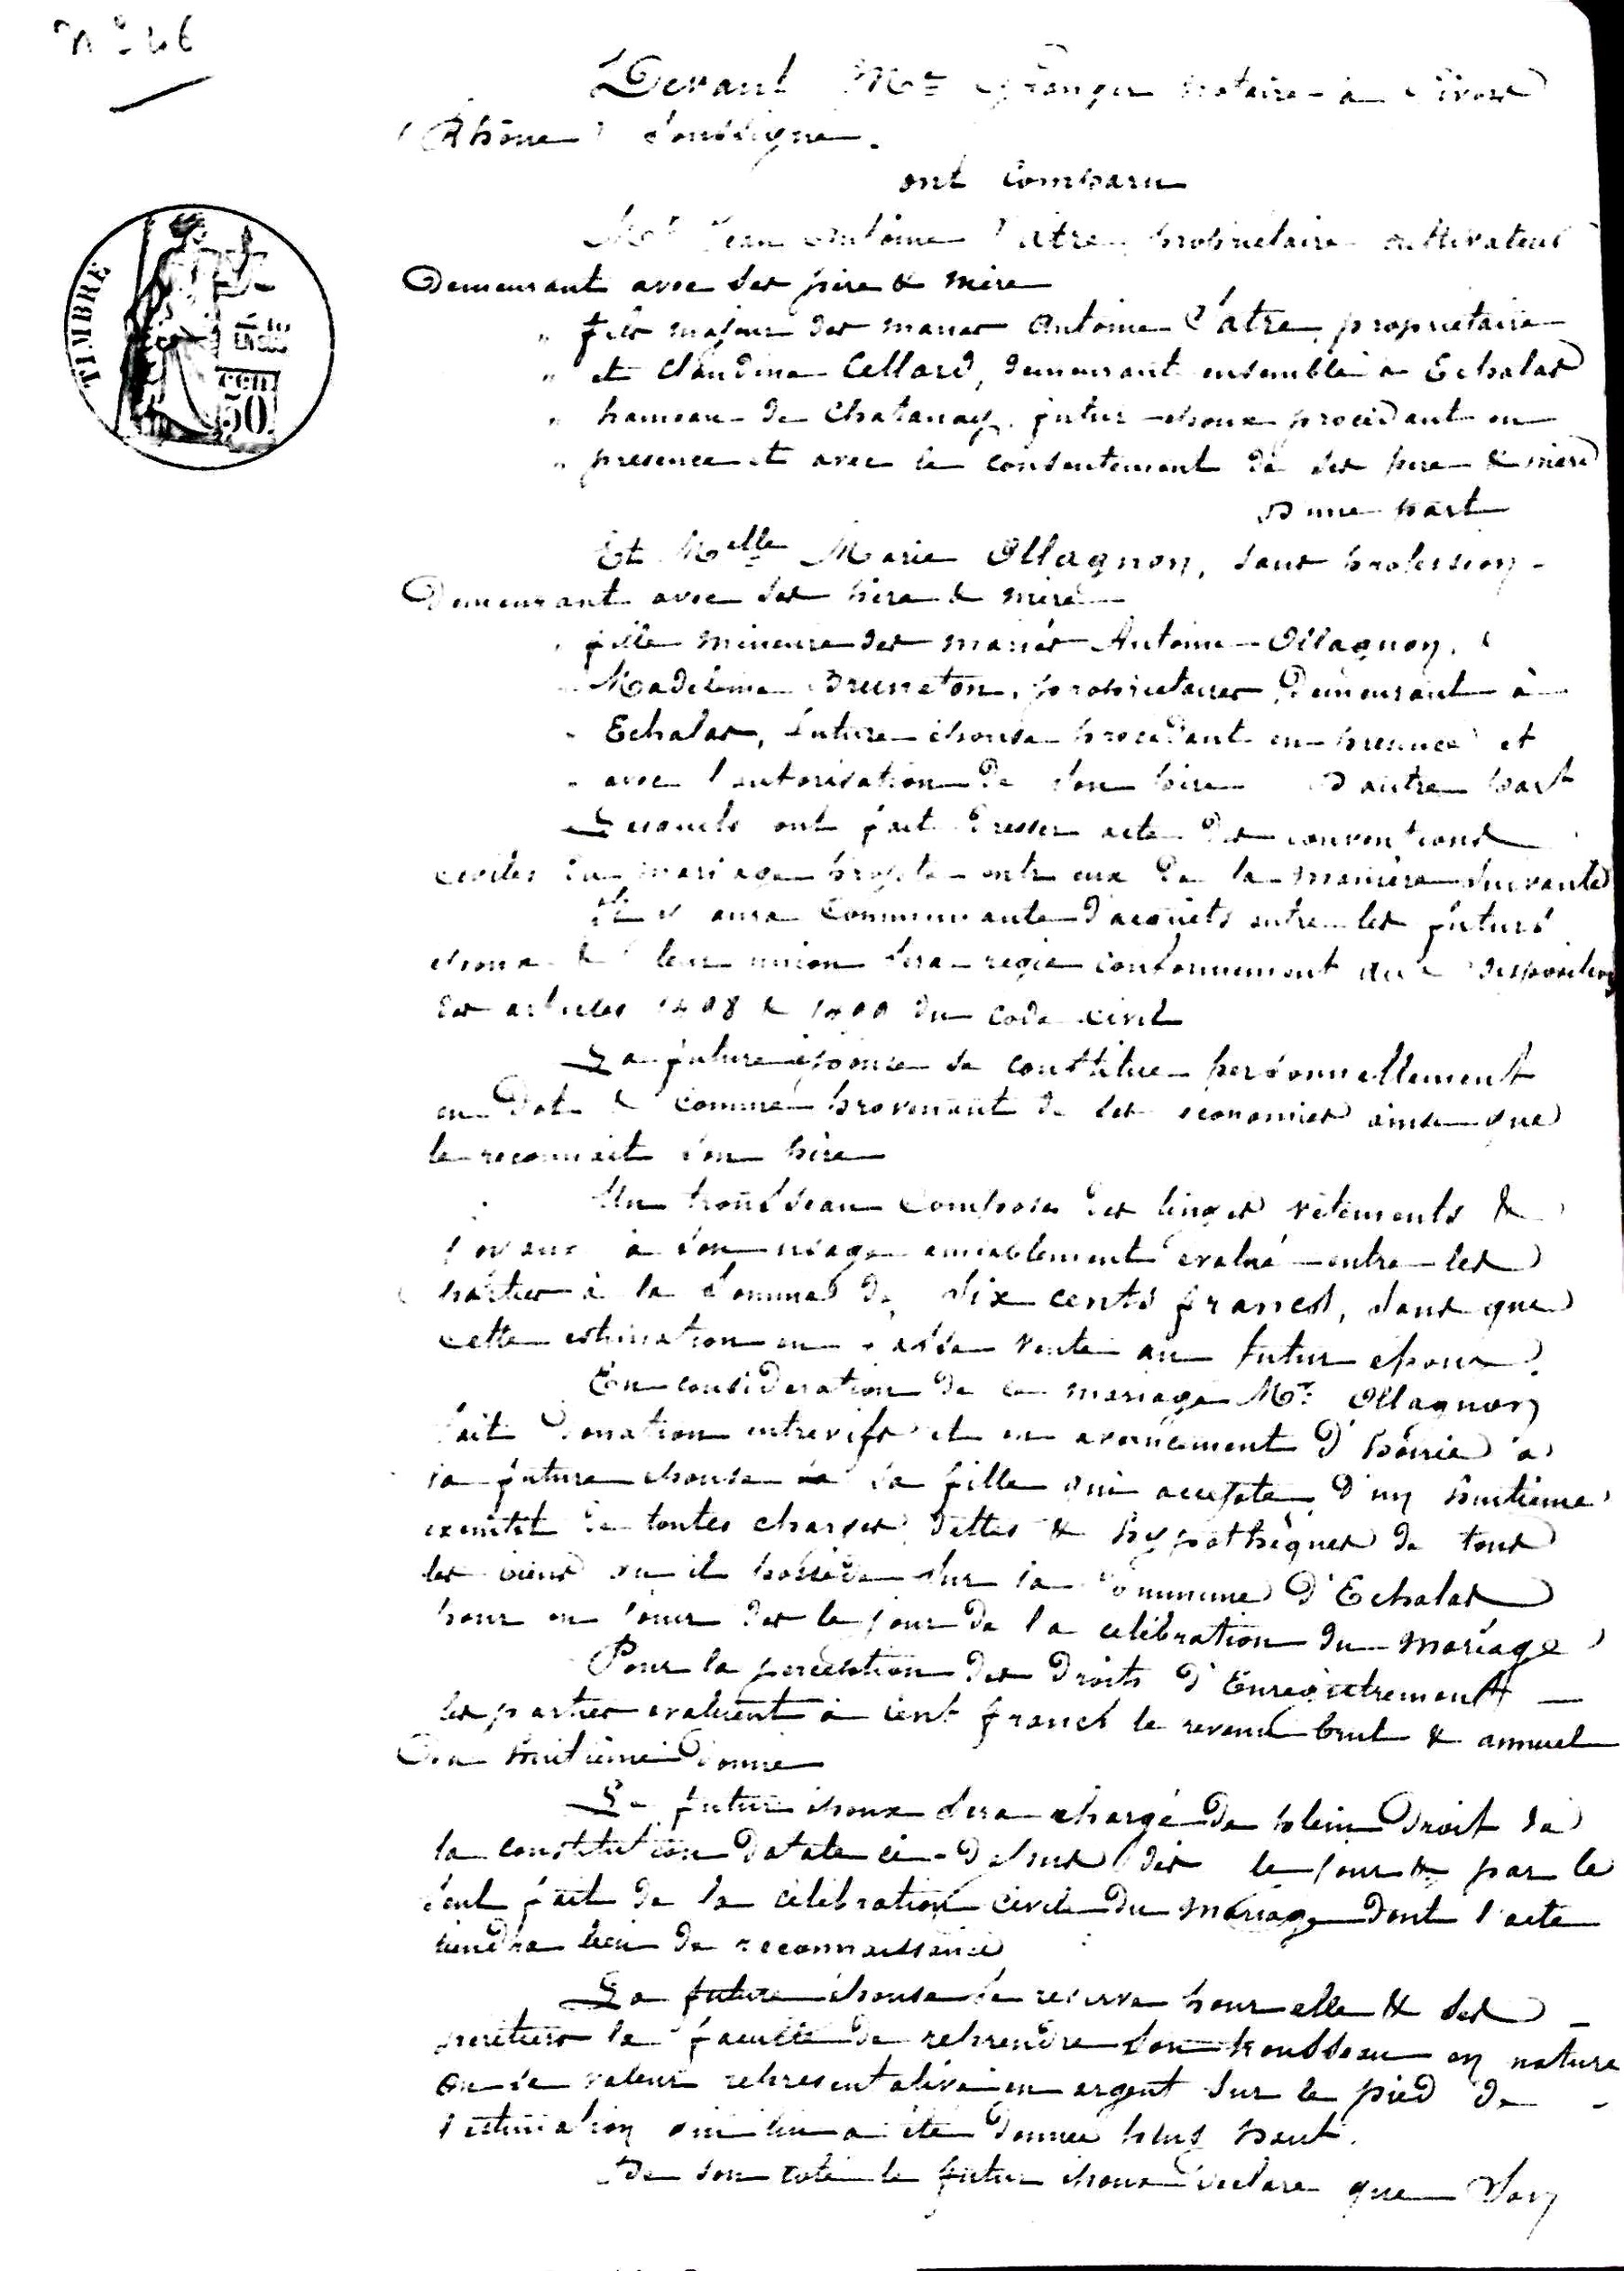 Devant Me notaire à Givors
(Rhône) soussigné.
ont comparu
Mr Jean Antoine propriétaire cultivateur
demeurant avec ses père & mère
fils majeur des mariés Antoine propriétaire
et Claudine Cellard, demeurant ensemble à Echalas
hameau de Chatanay, futur époux procédant en
présence et avec le consentement de ses père & mère
d'une part
Et Melle Marie Ollagnon, sans profession
demeurant avec ses père & mère
fille mineure des mariés Antoine Ollagnon,
Madeleine propriétaires, demeurant à
Echalas, future épouse procédant en présence et
avec l'autorisation de son père d'autre part
TIMBRE
50
Lesquels ont fait dresser acte des conventions
civiles du mariage projeté entre eux de la manière suivante
Il y aura communauté d'acquêts entre les futurs
époux & leur union sera régie conformément aux dispositions
des articles 1498 & 1499 du code civil
La future épouse se constitue personnellement
en dot & comme provenant de ses économies ainsi que
le reconnait son père
Un trousseau composé des linges vêtements &
joyaux à son usage amiablement évalué entre les
parties à la somme de six cents francs, sans que
cette estimation en fasse vente au futur époux.
En considération de ce mariage Mr Ollagnon
fait donation entrevifs et en avancement d'hoirie à
la future épouse sa fille qui accepte d'un huitième
exempt de toutes charges dettes & hypothèques de tous
les biens qu'il possède sur la commune d'Echalas
pour en jouir dès le jour de la célébration du mariage
Pour la perception des droits d'Enregistrement
les parties évaluent à cent francs le revenu brut & annuel
du huitième donné
Le futur époux sera chargé de plein droit de
la constitution dotale ci-dessus dès le jour & par le
seul fait de la célébration civile du mariage dont l'acte
tiendra lieu de reconnaissance
La future épouse se réserve pour elle & ses
héritiers la faculté de reprendre son trousseau en nature
ou sa valeur représentative en argent sur le pied de
l'estimation qui lui a été donnée plus haut.
De son côté le futur époux déclare que son